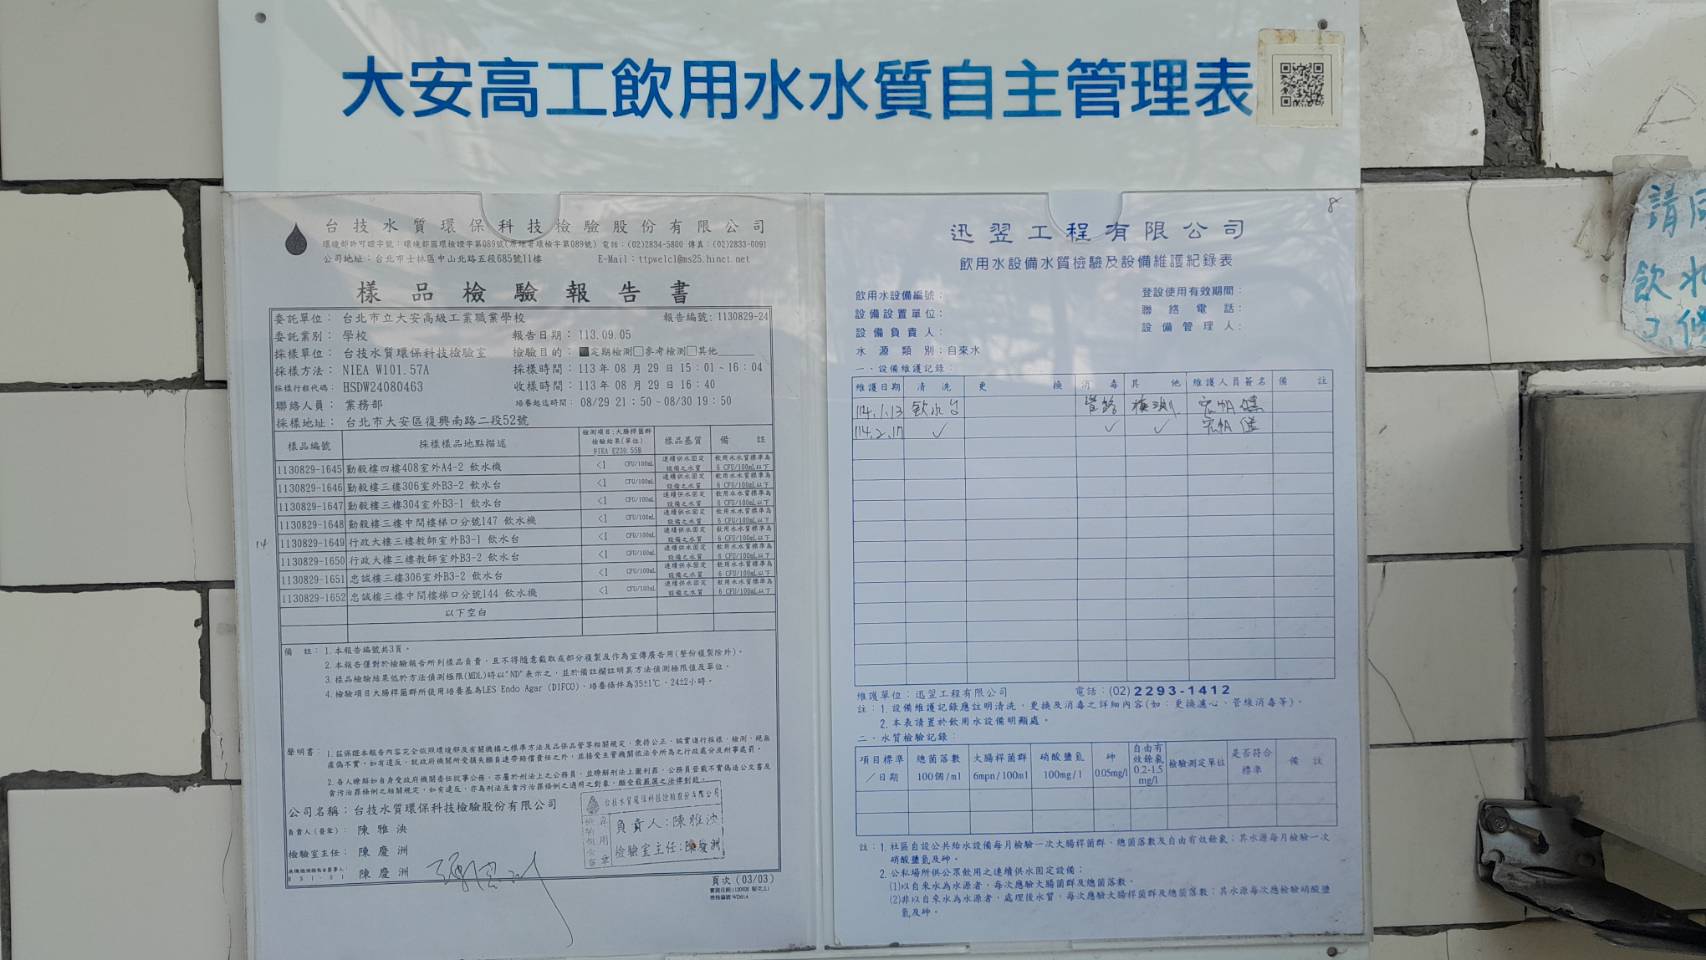 大安高工飲用水水質自主管理表
台技水質環保科技檢驗股份有限公司
環境部許可證字號：環境部國環檢證字第089號(原環署環檢字第089號) 電話：(02)2834-5800 傳真：(02)2833-6091
公司地址：台北市士林區中山北路五段685號11樓 E-Mail：ttpwelcl@ms25.hinet.net
樣品檢驗報告書
委託單位：台北市立大安高級工業職業學校 報告編號：1130829-24
委託業別：學校 報告日期：113.09.05
採樣單位：台技水質環保科技檢驗室 檢驗目的：■定期檢測□參考檢測□其他
採樣方法：NIEA W101.57A 採樣時間：113年 08 月 29 日 15：01~16：04
採樣行程代碼：HSDW24080463 收樣時間：113年 08 月 29 日 16：40
聯絡人員：業務部 培養起迄時間：08/29 21：50~08/30 19：50
採樣地址：台北市大安區復興南路二段52號
樣品編號 採樣樣品地點描述 檢測項目:大腸桿菌群 檢驗結果(單位) NIEA E230.55B 樣品基質 備註
1130829-1645 勤毅樓四樓408室外A4-2 飲水機 <1 CFU/100mL 連續供水固定設備之水質 飲用水水質標準為 6 CFU/100mL以下
1130829-1646 勤毅樓三樓306室外B3-2 飲水台 <1 CFU/100mL 連續供水固定設備之水質 飲用水水質標準為 6 CFU/100mL以下
1130829-1647 勤毅樓三樓304室外B3-1 飲水台 <1 CFU/100mL 連續供水固定設備之水質 飲用水水質標準為 6 CFU/100mL以下
1130829-1648 勤毅樓三樓中間樓梯口分號147 飲水機 <1 CFU/100mL 連續供水固定設備之水質 飲用水水質標準為 6 CFU/100mL以下
14
1130829-1649 行政大樓三樓教師室外B3-1 飲水台 <1 CFU/100mL 連續供水固定設備之水質 飲用水水質標準為 6 CFU/100mL以下
1130829-1650 行政大樓三樓教師室外B3-2 飲水台 <1 CFU/100mL 連續供水固定設備之水質 飲用水水質標準為 6 CFU/100mL以下
1130829-1651 忠誠樓三樓306室外B3-2 飲水台 <1 CFU/100mL 連續供水固定設備之水質 飲用水水質標準為 6 CFU/100mL以下
1130829-1652 忠誠樓三樓中間樓梯口分號144 飲水機 <1 CFU/100mL 連續供水固定設備之水質 飲用水水質標準為 6 CFU/100mL以下
以下空白
備註：1.本報告編號共3頁。
2.本報告僅對於檢驗報告所列樣品負責，且不得隨意截取或部分複製及作為宣傳廣告用(整份複製除外)。
3.樣品檢驗結果低於方法偵測極限(MDL)時以"ND"表示之，並於備註欄註明其方法偵測極限值及單位。
4.檢驗項目大腸桿菌群所使用培養基為LES Endo Agar (DIFCO)、培養條件為35±1℃、24±2小時。
聲明書：1.茲保證本報告內容完全依照環境部及有關機構之標準方法及品保品管等相關規定，秉持公正、誠實進行採樣、檢測。絕無
虛偽不實，如有違反，就政府機關所受損失願負連帶賠償責任之外，並接受主管機關依法令所為之行政處分及刑事處罰。
2.各人瞭解如自身受政府機關委任從事公務，亦屬於刑法上之公務員，並瞭解刑法上圖利罪、公務員登載不實偽造公文書及
貪污治罪條例之相關規定，如有違反，亦為刑法及貪污治罪條例之適用之對象，願受最嚴厲之法律制裁。
公司名稱：台技水質環保科技檢驗股份有限公司
負責人(簽章)：陳雅泱
檢驗室主任：陳慶洲
陳慶洲
台技水質環保科技檢驗股份有限公司
負責人:陳雅泱
檢驗室主任:陳慶洲
頁次 (03/03)
8
迅翌工程有限公司
飲用水設備水質檢驗及設備維護紀錄表
飲用水設備編號： 登設使用有效期間：
設備設置單位： 聯絡電話：
設備負責人： 設備管理人：
水源類別：自來水
一、設備維護記錄：
維護日期 清洗 更換 消毒 其他 維護人員簽名 備註
114.1.13 飲水台 管路 檢測
114.2.17 ✓ ✓ ✓
維護單位：迅翌工程有限公司 電話：(02)2293-1412
註：1.設備維護記錄應註明清洗，更換及消毒之詳細內容(如：更換濾心、管線消毒等)。
2.本表請置於飲用水設備明顯處。
二、水質檢驗記錄：
項目標準／日期 總菌落數 100個/ml 大腸桿菌群 6mpn/100ml 硝酸鹽氮 100mg/l 砷 0.05mg/l 自由有效餘氯 0.2-1.5 mg/l 檢驗測定單位 是否符合標準 備註
註：1.社區自設公共給水設備每月檢驗一次大腸桿菌群、總菌落數及自由有效餘氯；其水源每月檢驗一次
硝酸鹽氮及砷。
2.公私場所供公眾飲用之連續供水固定設備：
(1)以自來水為水源者，每次應驗大腸菌群及總菌落數。
(2)非以自來水為水源者，處理後水質，每次應驗大腸桿菌群及總菌落數；其水源每次應檢驗硝酸鹽
氮及砷。
請
飲水